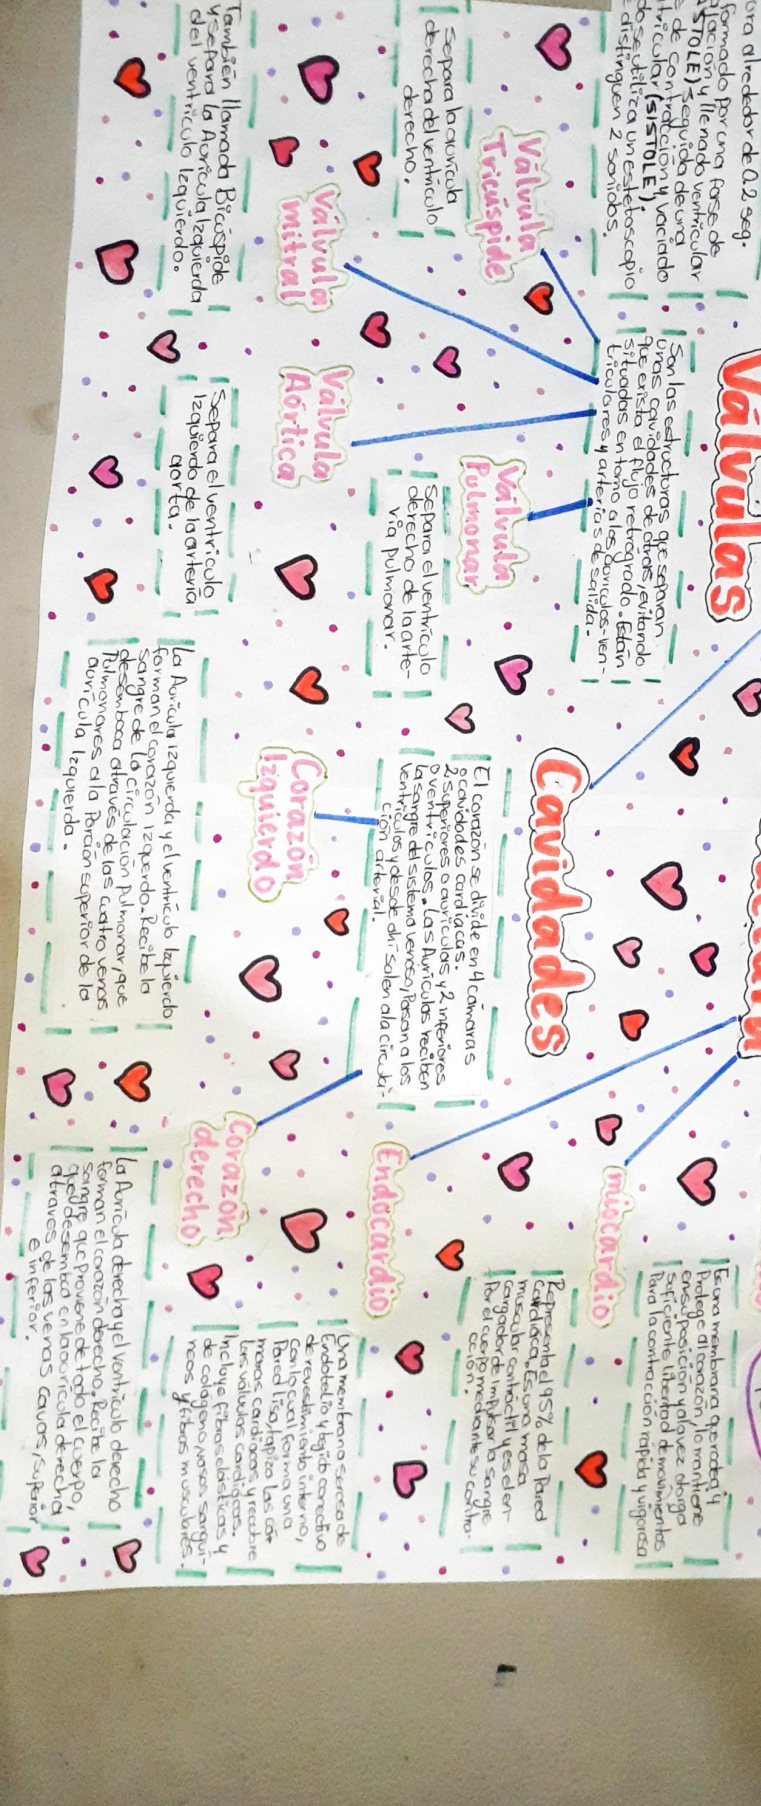 ora alrededor de 0.2 seg.
formado por una fase de
ación y llenado ventricular
STOLE) seguida de una
e de contracción y vaciado
tricular (SISTOLE).
do se utiliza un estetoscopio
distinguen 2 sonidos.
Válvulas
Son las estructuras que separan
unas cavidades de otras, evitando
que exista el flujo retrógrado. Están
situadas en torno a los aurículas-ven-
triculares y arterias de salida.
Válvula
Tricúspide
Separa la aurícula
derecha del ventrículo
derecho.
Válvula
mitral
También llamada Bicúspide
y separa la Aurícula Izquierda
del ventrículo Izquierdo.
Válvula
Pulmonar
Separa el ventrículo
derecho de la arte-
ria pulmonar.
Válvula
Aórtica
Separa el ventrículo
Izquierdo de la arteria
aorta.
Cavidades
El corazón se divide en 4 cámaras
o cavidades cardiacas.
2 superiores o aurículas y 2 inferiores
o ventrículos. Las Aurículas reciben
la sangre del sistema venoso, Pasan a los
ventrículos y desde ahí salen a la circula-
ción arterial.
Corazón
Izquierdo
La Aurícula izquierda y el ventrículo Izquierdo
forman el corazón izquierdo. Recibe la
sangre de la circulación pulmonar, que
desemboca a través de las cuatro venas
Pulmonares a la Porción superior de la
aurícula Izquierda.
Corazón
derecho
La Aurícula derecha y el ventrículo derecho
forman el corazón derecho. Recibe la
sangre que proviene de todo el cuerpo,
que desemboca en la aurícula derecha
a traves de las venas cavas, superior
e inferior.
Es una membrana que rodea y
Protege al corazón, lo mantiene
en su posición y a la vez otorga
suficiente libertad de movimientos
Para la contracción rápida y vigorosa
miocardio
Representa el 95% de la Pared
Cardiaca. Es una masa
muscular contráctil y es el en-
cargado de impulsar la sangre
Por el cuerpo mediante su contra-
cción.
Endocardio
Una membrana serosa de
Endotelio y tejido conectivo
de revestimiento interno,
con lo cual forma una
Pared lisa, tapiza las cá-
maras cardiacas y recubre
las válvulas cardiacas.
Incluye fibras elásticas y
de colágeno, vasos sanguí-
neos y fibras musculares.